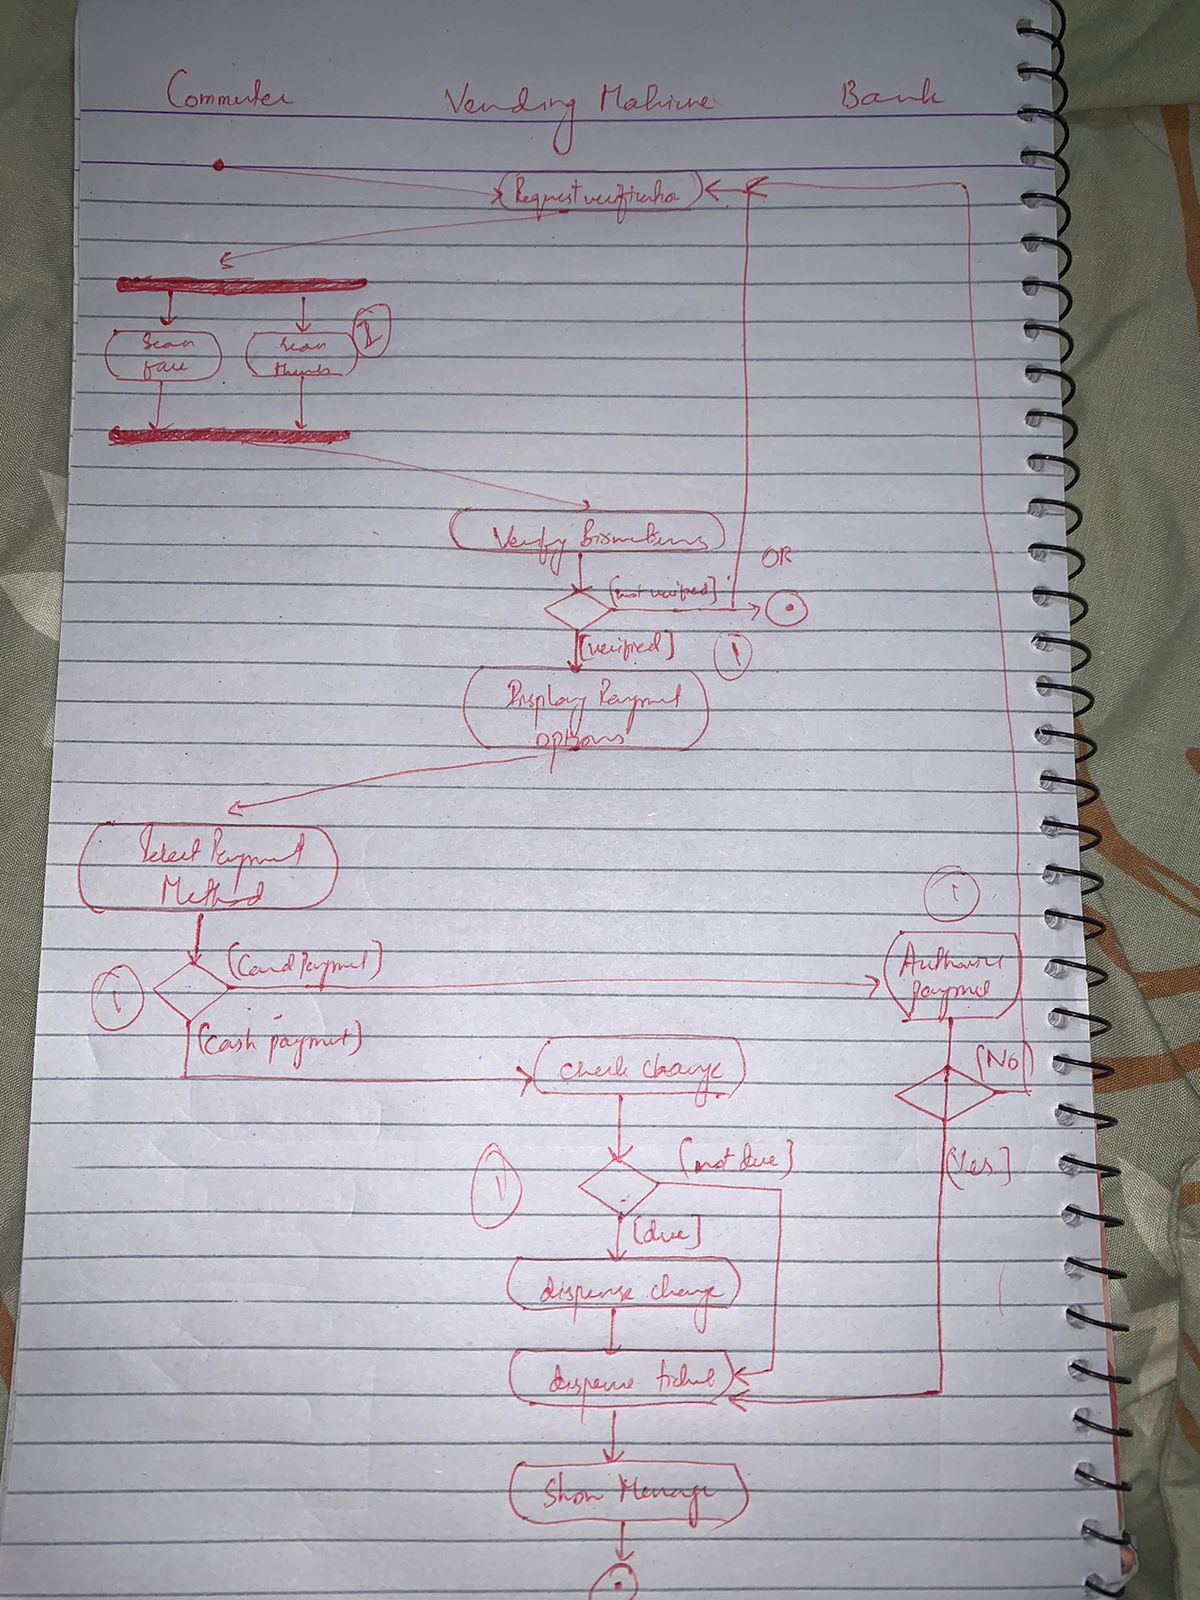 Commuter Vending Mahine Bank
Request verification
Scan
face
scan
thumb
1
Verify Biometrics
OR
[not verified]
[verified]
1
Display Payment
options
Select Payment
Method
1
[Card Payment]
Authorise
payment
1
[cash payment]
check change
[No]
[not due]
[Yes]
1
[due]
dispense change
dispense ticket
Show Message